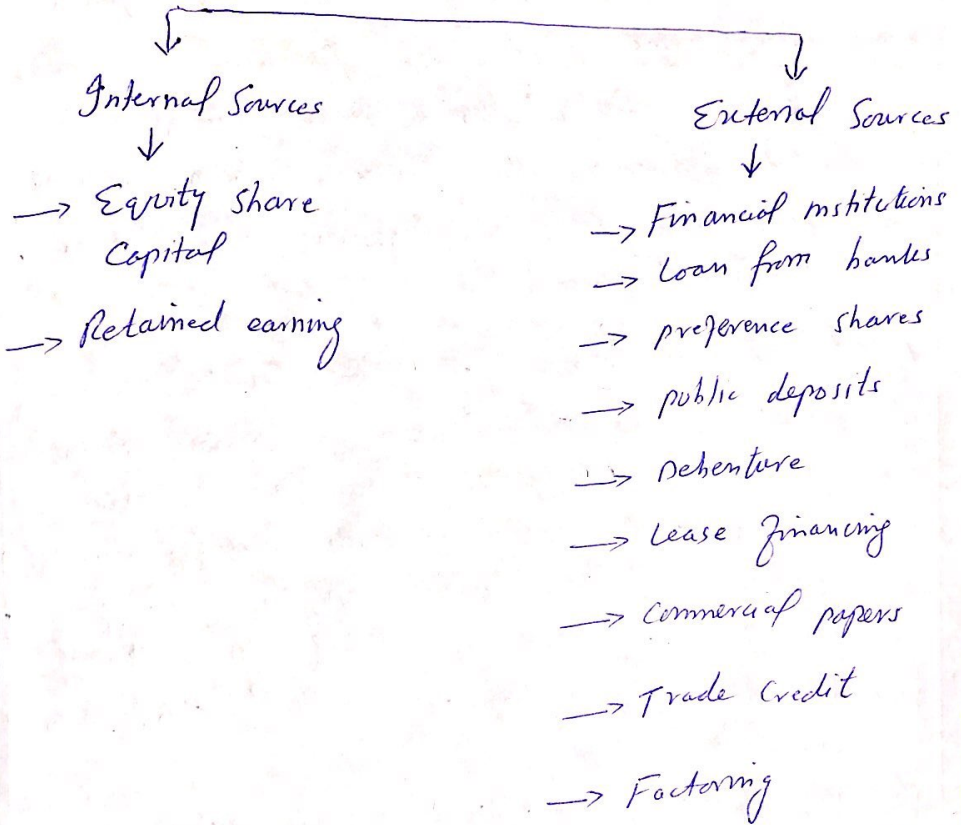 Internal Sources
→ Equity share
Capital
→ Retained earning
External Sources
→ Financial institutions
→ Loan from banks
→ preference shares
→ public deposits
→ Debenture
→ Lease financing
→ Commercial papers
→ Trade Credit
→ Factoring